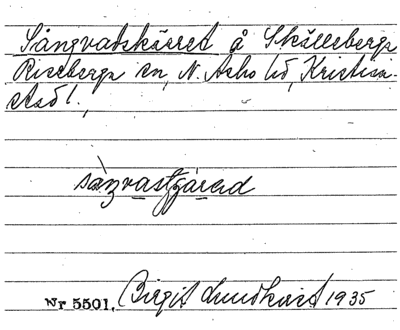 Sångvadskärret å Skälleberga
Riseberga sn, N. Åsbo hd, Kristian-
stads l.,
Nr 5501. Birgit Lundkvist 1935